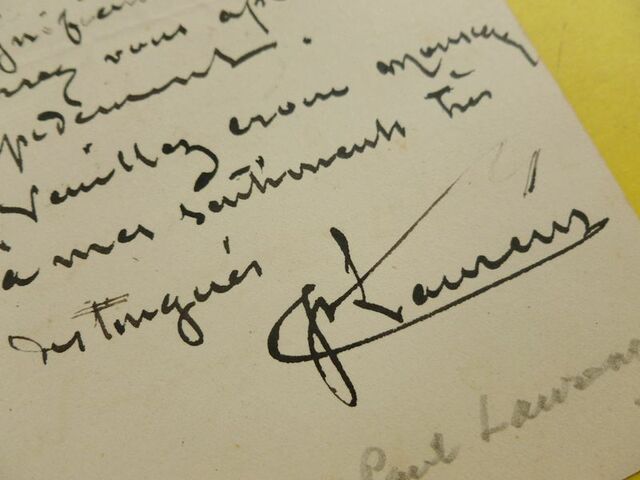 vous
rapidement.
Veuillez croire Monsieur
à mes sentiments très
distingués
JP Laurens
Paul Laurens